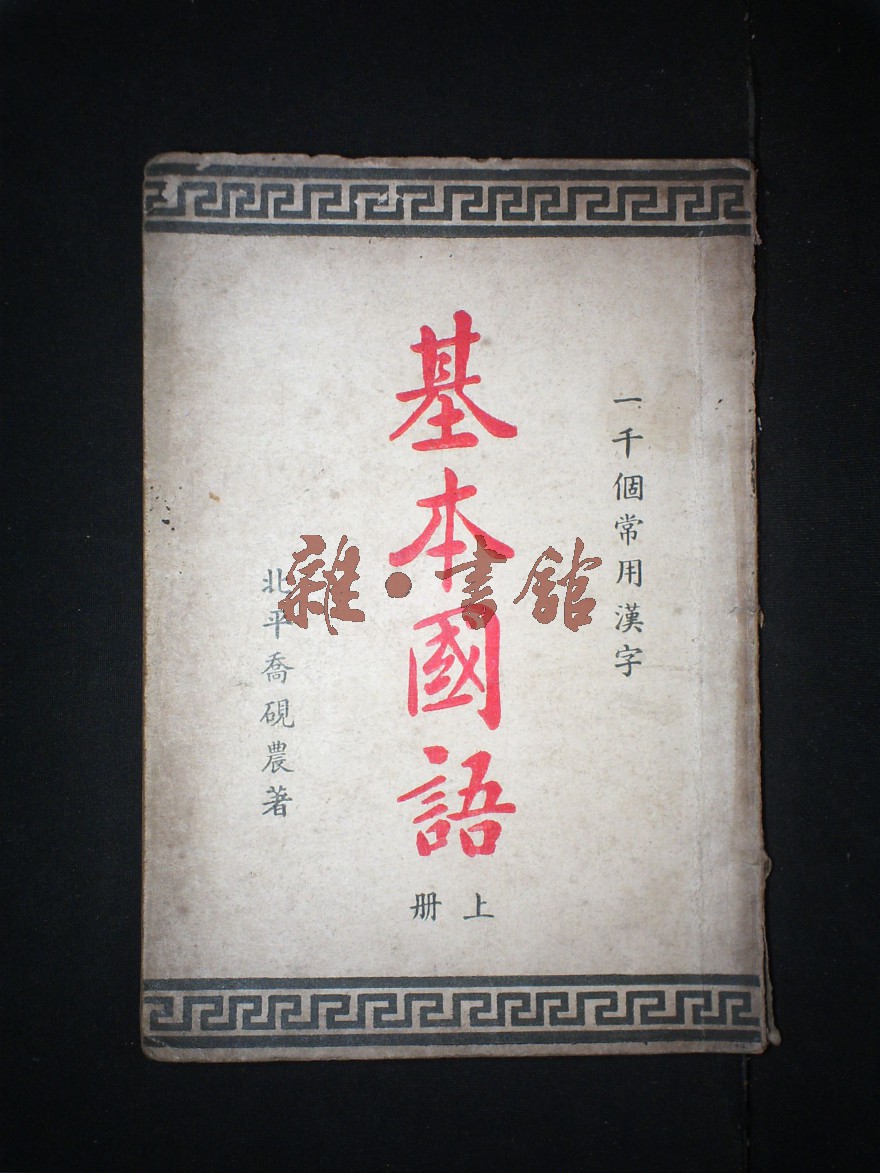 一千個常用漢字
基本國語
上册
北平喬硯農著
雜·書館